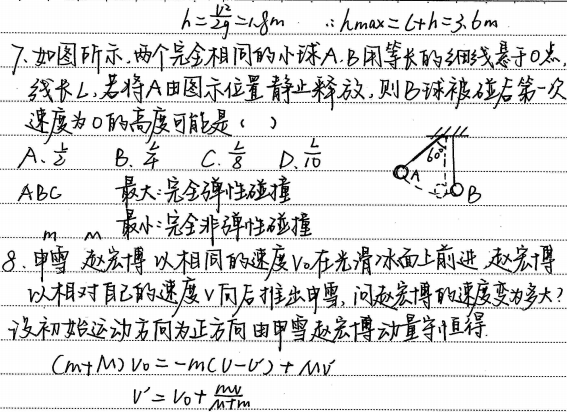 h=\frac{v²}{2g}=1.8m ∴hmax=L+h=3.6m
7、如图所示,两个完全相同的小球A.B用等长的细线悬于O点,
线长L,若将A由图示位置静止释放,则B球被碰后第一次
速度为0的高度可能是( )
A、\frac{L}{2} B、\frac{L}{4} C、\frac{L}{8} D、\frac{L}{10}
60°
A
B
ABC 最大:完全弹性碰撞
最小:完全非弹性碰撞
m M
8、申雪 赵宏博以相同的速度V₀在光滑冰面上前进,赵宏博
以相对自己的速度V向后推出申雪,问赵宏博的速度变为多大?
设初始运动方向为正方向由申雪赵宏博动量守恒得
(m+M)V₀=-m(V-V')+MV'
V'=V₀+\frac{mV}{M+m}